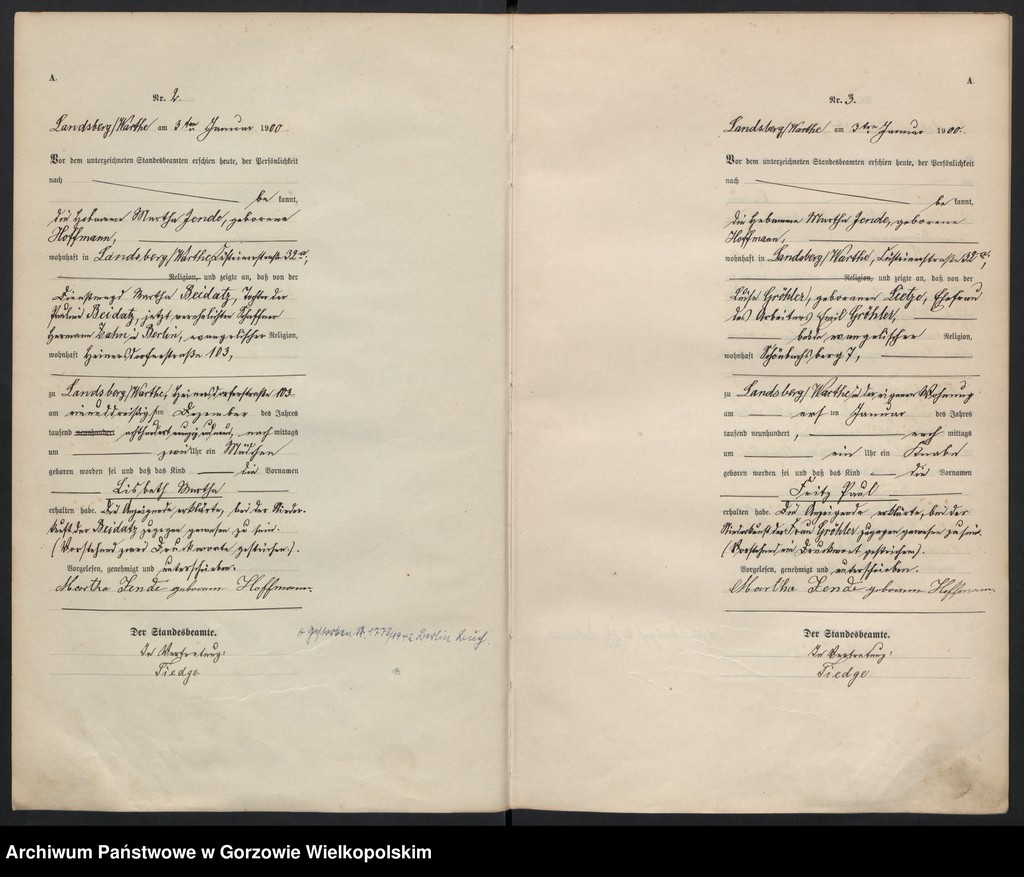 A.
Nr. 2.
Landsberg/Warthe am 3ten Januar 1900.
Vor dem unterzeichneten Standesbeamten erschien heute, der Persönlichkeit
nach
be kannt,
die Hebamme Martha Jende, geborene
Hoffmann,
wohnhaft in Landsberg/Warthe, Küstrinerstraße 32a,
Religion, und zeigte an, daß von der
Dienstmagd Martha Beidatz, Tochter der
Beidatz, jetzt verehelichte Schaffner
Hermann Zahn in Berlin, evangelischer Religion,
wohnhaft Heinersdorferstraße 103,
zu Landsberg/Warthe, Heinersdorferstraße 103
am einunddreißigsten Dezember des Jahres
tausend neunhundert achthundert neunzig und neun, nach mittags
um zwei Uhr ein Mädchen
geboren worden sei und daß das Kind die Vornamen
Lisbeth Martha
erhalten habe. Die Anzeigende erklärte, bei der Nieder-
kunft der Beidatz zugegen gewesen zu sein.
(Vorstehend zwei Druckworte gestrichen).
Vorgelesen, genehmigt und unterschrieben.
Martha Jende geborene Hoffmann.
Der Standesbeamte.
In Vertretung:
Tiedge.
gestorben Nr. 1773/1942 Berlin Buch.
A.
Nr. 3.
Landsberg/Warthe am 3ten Januar 1900.
Vor dem unterzeichneten Standesbeamten erschien heute, der Persönlichkeit
nach
be kannt,
die Hebamme Martha Jende, geborene
Hoffmann,
wohnhaft in Landsberg/Warthe, Küstrinerstraße 32a,
Religion, und zeigte an, daß von der
Luise Gröhler, geborenen Lietze, Ehefrau
des Arbeiters Emil Gröhler,
beide evangelischer Religion,
wohnhaft Schönbachsberg 7,
zu Landsberg/Warthe, in der eigenen Wohnung
am ersten Januar des Jahres
tausend neunhundert, nach mittags
um ein Uhr ein Knabe
geboren worden sei und daß das Kind die Vornamen
Fritz Paul
erhalten habe. Die Anzeigende erklärte, bei der
Niederkunft der Frau Gröhler zugegen gewesen zu sein.
(Vorstehend ein Druckwort gestrichen).
Vorgelesen, genehmigt und unterschrieben.
Martha Jende geborene Hoffmann
Der Standesbeamte.
In Vertretung:
Tiedge.
Archiwum Państwowe w Gorzowie Wielkopolskim